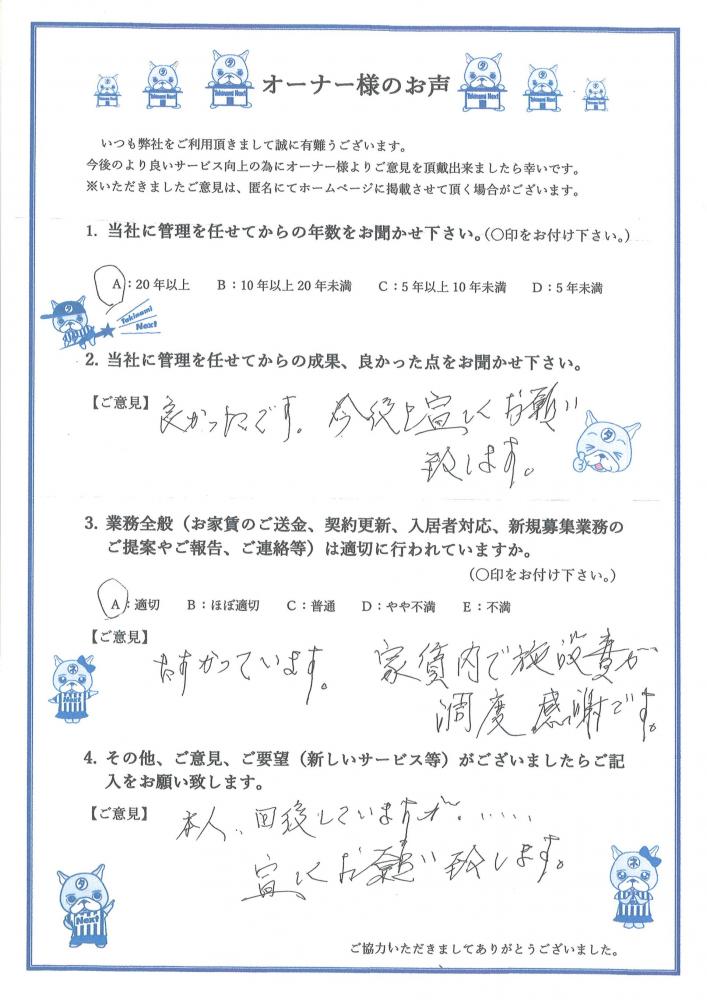 オーナー様のお声
いつも弊社をご利用頂きまして誠に有難うございます。
今後のより良いサービス向上の為にオーナー様よりご意見を頂戴出来ましたら幸いです。
※いただきましたご意見は、匿名にてホームページに掲載させて頂く場合がございます。
1. 当社に管理を任せてからの年数をお聞かせ下さい。(〇印をお付け下さい。)
A：20年以上 B：10年以上20年未満 C：5年以上10年未満 D：5年未満
Takinami
Next
2. 当社に管理を任せてからの成果、良かった点をお聞かせ下さい。
【ご意見】良かったです。今後も宜しくお願い
致します。
3. 業務全般（お家賃のご送金、契約更新、入居者対応、新規募集業務の
ご提案やご報告、ご連絡等）は適切に行われていますか。
(〇印をお付け下さい。)
A：適切 B：ほぼ適切 C：普通 D：やや不満 E：不満
【ご意見】
たすかっています。 家賃内で施設費が
調度 感謝です。
4. その他、ご意見、ご要望（新しいサービス等）がございましたらご記
入をお願い致します。
【ご意見】 本人、回後していますが、.....
宜しくお願い致します。
ご協力いただきましてありがとうございました。